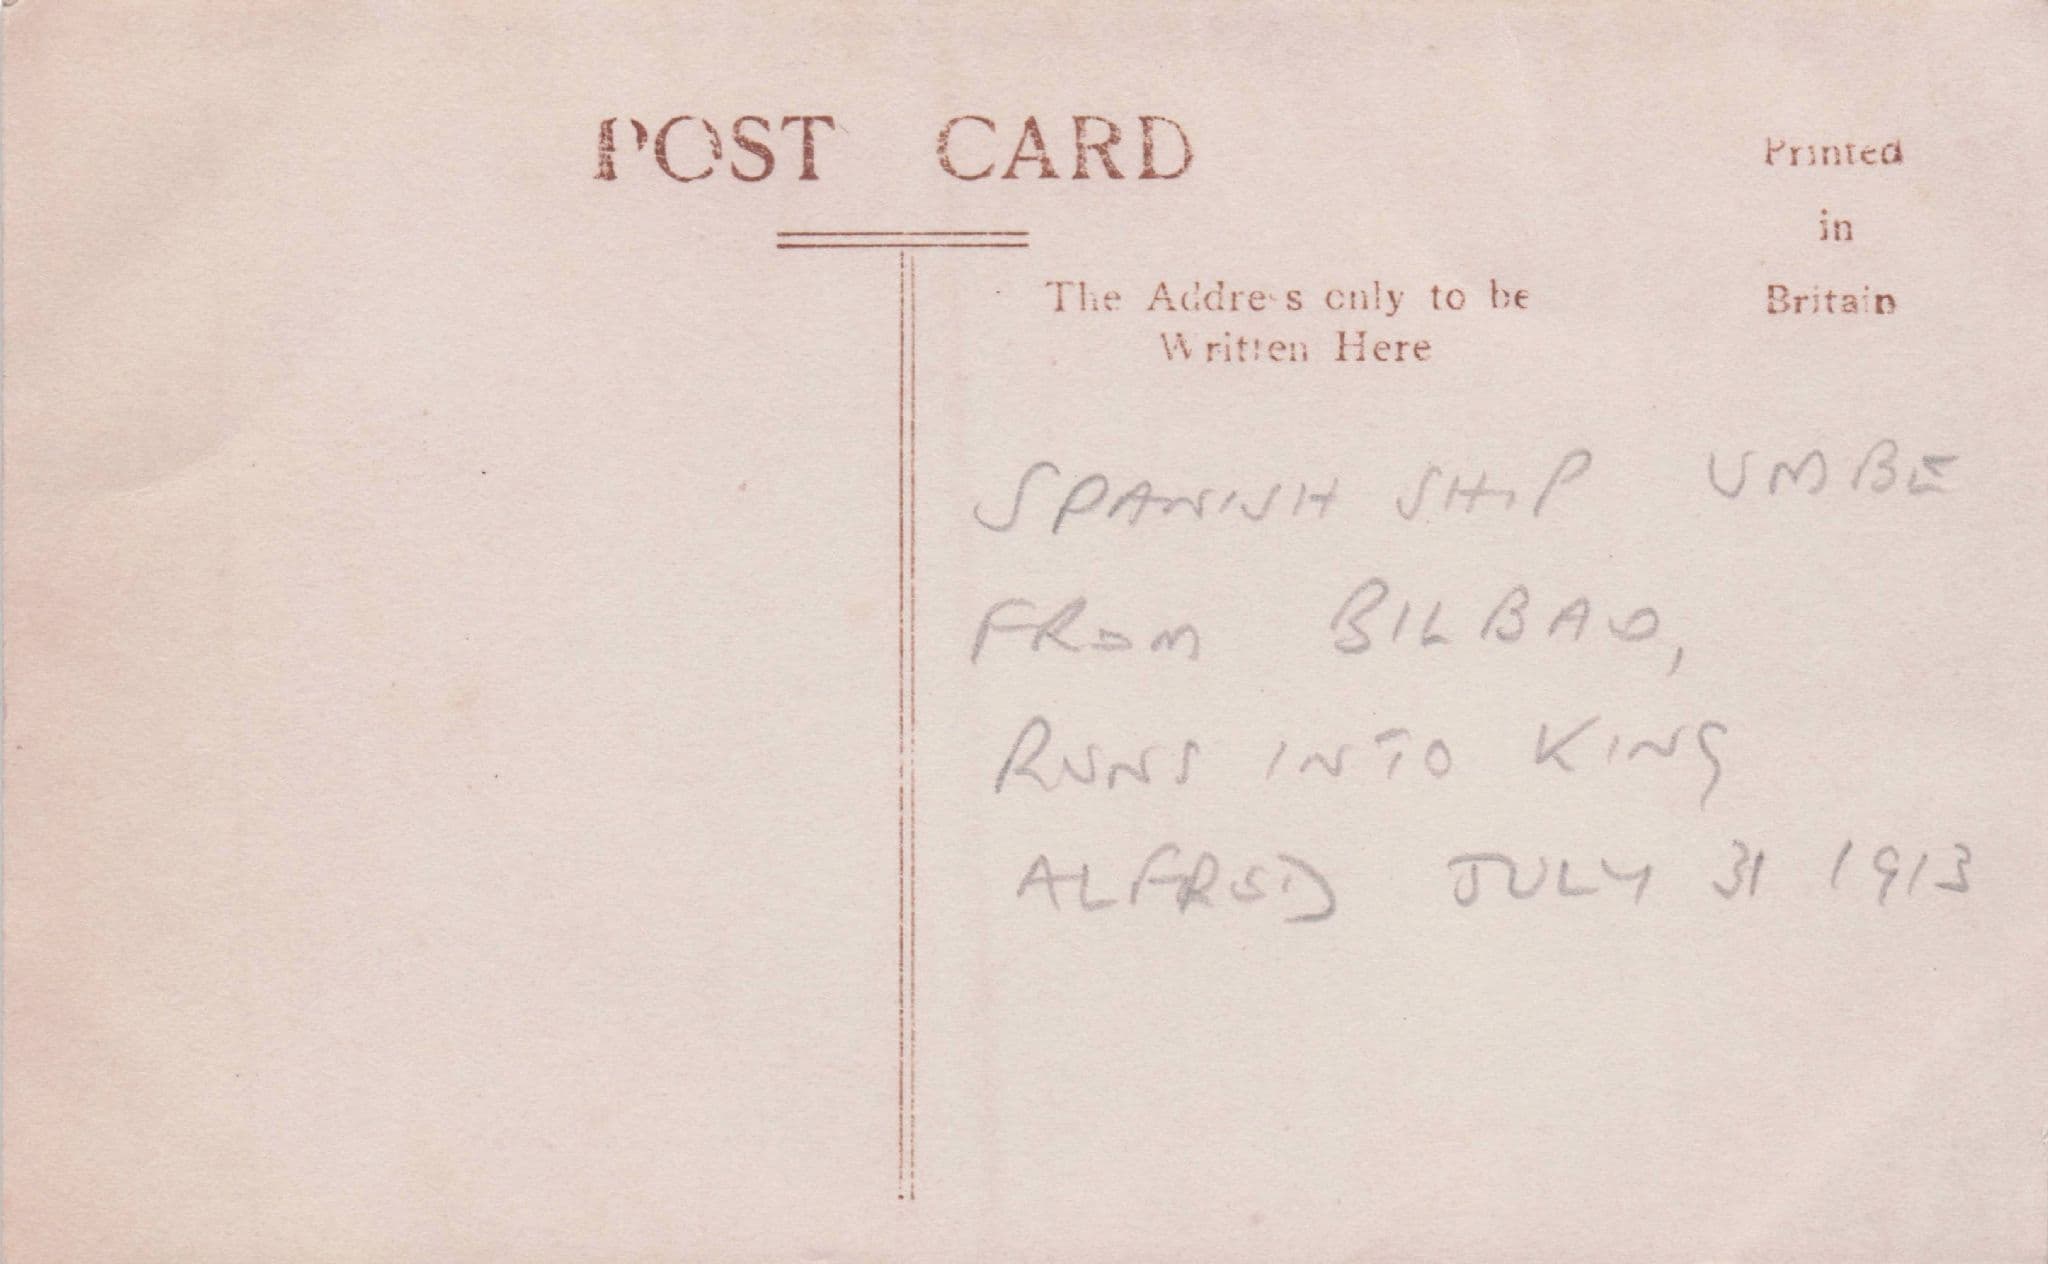 POST CARD
Printed
in
Britain
The Address only to be
Written Here
SPANISH SHIP UMBE
FROM BILBAO,
RUNS INTO KING
ALFRED JULY 31 1913